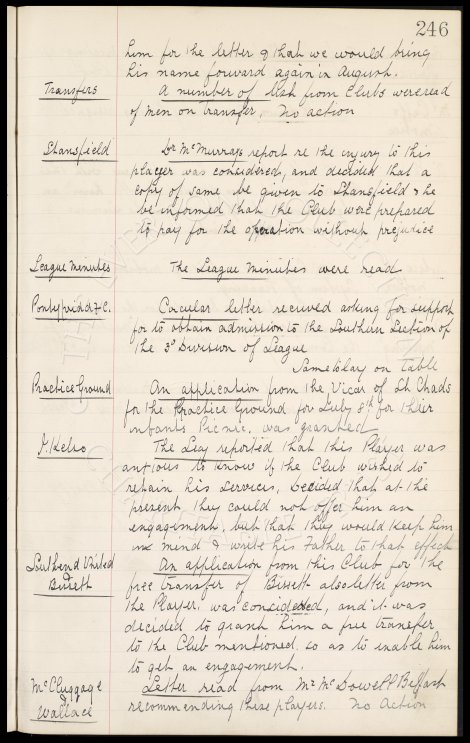 246
him for the letter & that we would bring
his name forward again in August.
Transfers
A number of lists from Clubs were read
of men on transfer. No action
Stansfield
Dr McMurrays report re the injury to this
player was considered, and decided that a
copy of same be given to Stansfield & he
be informed that the Club were prepared
to pay for the operation without prejudice
League Menutes
The League Minutes were read
Pontypridd F.C.
Circular letter received asking for support
for to obtain admission to the Southern Section of
the 3rd Division of League
Same to lay on table
Practice Ground
An application from the Vicar of St Chads
for the Practice Ground for July 8th for their
infants Picnic, was granted
J. Kelso
The Secy reported that this Player was
antious to know if the Club wished to
retain his services, Decided that at the
present they could not offer him an
engagement, but that they would keep him
in mind & write his Father to that effect
Southend United
Birrett
An application from this Club for the
free transfer of Birrett also letter from
the Player, was considered, and it was
decided to grant him a free transfer
to the Club mentioned so as to enable him
to get an engagement.
McCluggage
&
Wallace
Letter read from Mr McDowell Belfast
recommending these players. No Action